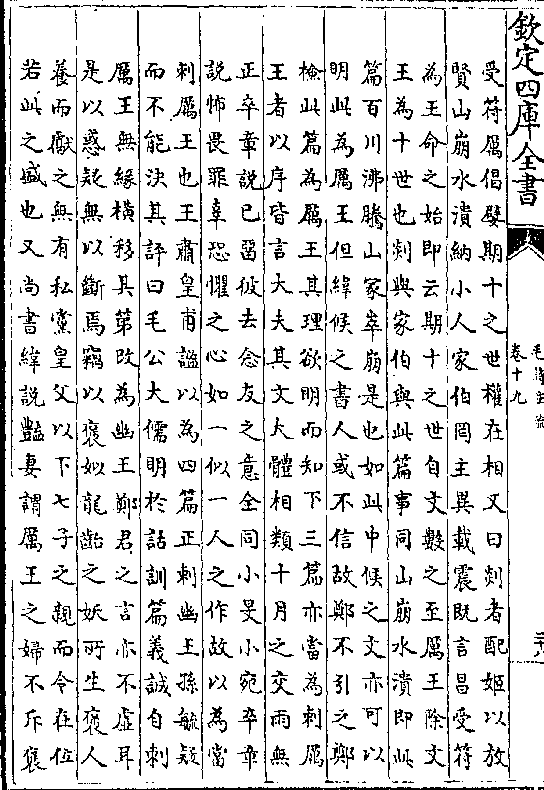 欽定四庫全書
卷十九
受符厲倡嬖期十之世權在相又曰剡者配姬以放
賢山崩水潰納小人家伯罔主異載震既言昌受符
為王命之始即云期十之世自文數之至厲王除文
王為十世也剡與家伯與此篇事同山崩水潰即此
篇百川沸騰山冢崒崩是也如此中候之文亦可以
明此為厲王但緯候之書人或不信故鄭不引之鄭
檢此篇為厲王其理欲明而知下三篇亦當為刺厲
王者以序皆言大夫其文大體相類十月之交雨無
正卒章說已留彼去念友之意全同小旻小宛卒章
說怖畏罪辜恐懼之心如一似一人之作故以為當
刺厲王也王肅皇甫謐以為四篇正刺幽王孫毓疑
而不能決其評曰毛公大儒明於詁訓篇義誠自刺
厲王無緣橫移其第改為幽王鄭君之言亦不虛耳
是以惑疑無以斷焉竊以褒姒龍齝之妖所生褒人
養而獻之無有私黨皇父以下七子之親而令在位
若此之盛也又尚書緯說豔妻謂厲王之婦不斥褒